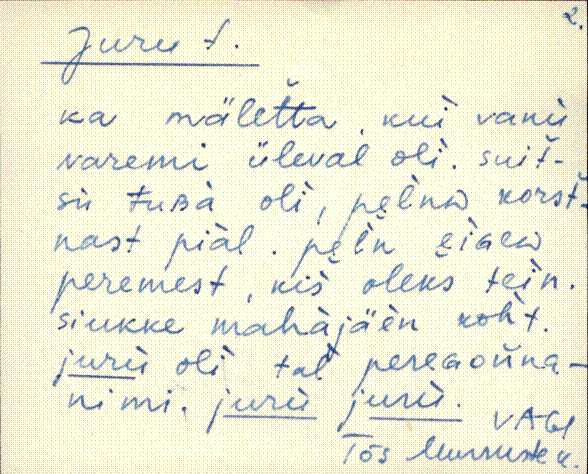 2.
Juru t.
ka mäleťta, kui vanù
varemi üleval olì. suiť-
sù tuʙà olì, pe̮lnᴅ korsť-
nast piàl. pe̮ln e̮iɢᴇᴅ
peremest, kìs oleks teìn.
siukke mahàjäèn koht.
jurù olì tal pereɢoǹna-
nimi. jurù jurù.
VAGI
Tõs